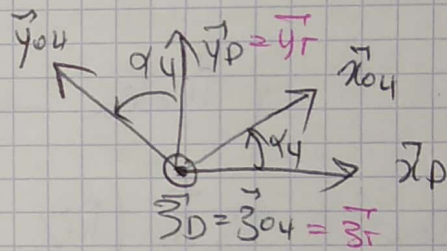 y⃗04 α4 y⃗D = y⃗T x⃗04
α4
x⃗D
z⃗D = z⃗04 = z⃗T